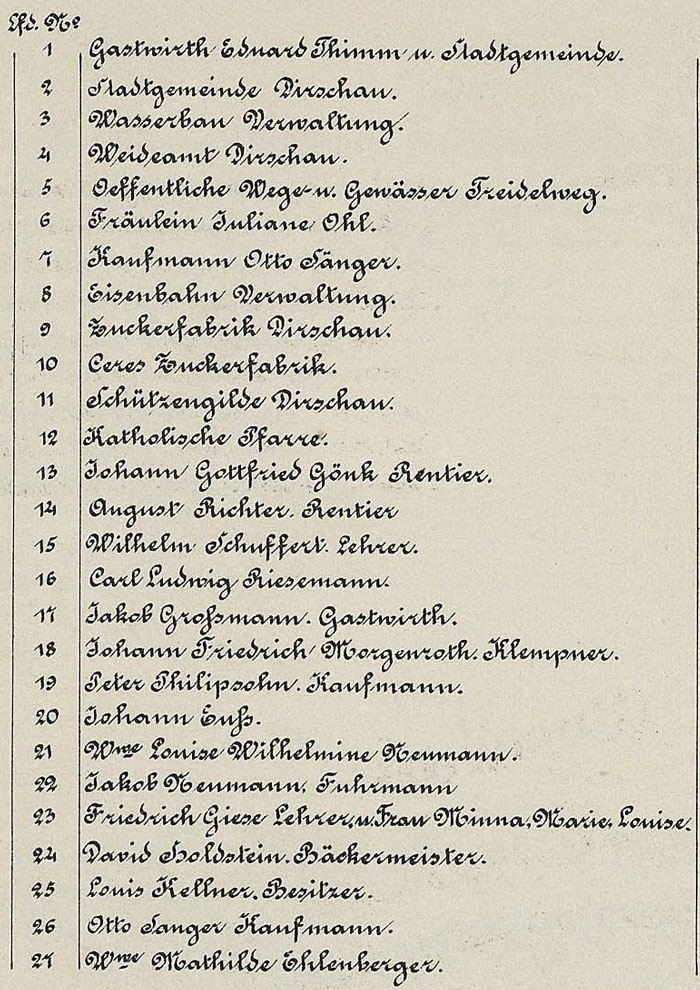 Lfd. No
1 Gastwirth Eduard Thimm u. Stadtgemeinde.
2 Stadtgemeinde Dirschau.
3 Wasserbau Verwaltung.
4 Weideamt Dirschau.
5 Oeffentliche Wege- u. Gewässer Treidelweg.
6 Fräulein Juliane Ohl.
7 Kaufmann Otto Sänger.
8 Eisenbahn Verwaltung.
9 Zuckerfabrik Dirschau.
10 Ceres Zuckerfabrik.
11 Schützengilde Dirschau.
12 Katholische Pfarre.
13 Johann Gottfried Gönk Rentier.
14 August Richter. Rentier
15 Wilhelm Schuffert. Lehrer.
16 Carl Ludwig Riesemann.
17 Jakob Großmann. Gastwirth.
18 Johann Friedrich Morgenroth. Klempner.
19 Peter Philipsohn. Kaufmann.
20 Johann Enß.
21 Wwe Louise Wilhelmine Neumann.
22 Jakob Neumann, Fuhrmann
23 Friedrich Giese Lehrer, u. Frau Minna, Marie, Louise.
24 David Holdstein. Bäckermeister.
25 Louis Kellner. Besitzer.
26 Otto Sanger Kaufmann.
27 Wwe Mathilde Ehlenberger.